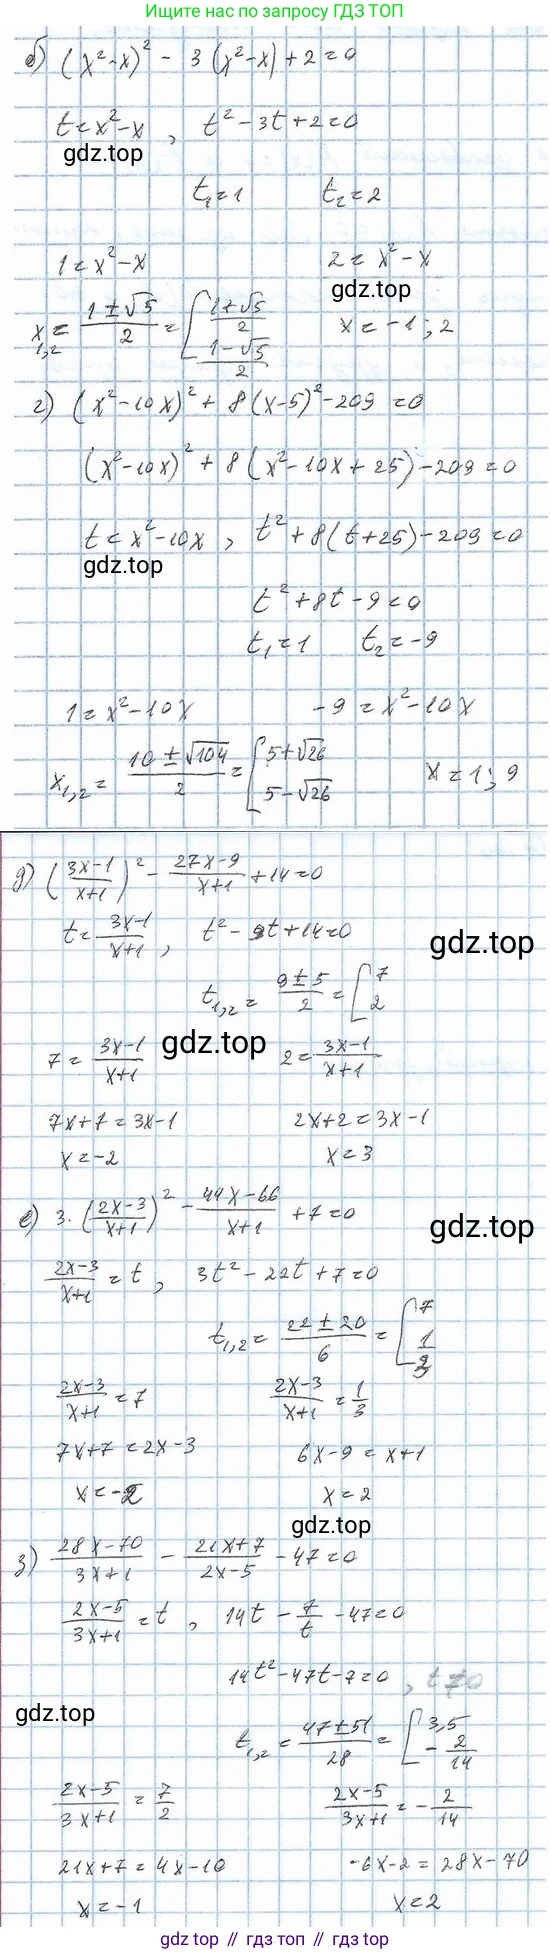 Ищите нас по запросу ГДЗ ТОП
б) (x²-x)² - 3(x²-x)+2=0
t=x²-x, t²-3t+2=0
gdz.top
t₁=1 t₂=2
1=x²-x 2=x²-x
gdz.top
x₁,₂ = (1±√5)/2 = [(1+√5)/2 (1-√5)/2 x=-1; 2
г) (x²-10x)² + 8(x-5)² - 209 = 0
(x²-10x)² + 8(x²-10x+25) - 209 = 0
t=x²-10x, t²+8(t+25)-209=0
gdz.top
t²+8t-9=0
t₁=1 t₂=-9
1=x²-10x -9=x²-10x
x₁,₂ = (10±√104)/2 = [5+√26 5-√26 x=1; 9
д) ((3x-1)/(x+1))² - (27x-9)/(x+1) + 14=0
t=(3x-1)/(x+1), t²-9t+14=0
gdz.top
t₁,₂ = (9±5)/2 = [7 2
7 = (3x-1)/(x+1) gdz.top 2=(3x-1)/(x+1)
7x+7=3x-1 2x+2=3x-1
x=-2 x=3
е) 3·((2x-3)/(x+1))² - (44x-66)/(x+1) + 7=0
gdz.top
(2x-3)/(x+1) = t, 3t²-22t+7=0
t₁,₂ = (22±20)/6 = [7 1/3
(2x-3)/(x+1) = 7 (2x-3)/(x+1) = 1/3
7x+7=2x-3 6x-9=x+1
x=-2 x=2
gdz.top
з) (28x-70)/(3x+1) - (21x+7)/(2x-5) - 47=0
(2x-5)/(3x+1) = t, 14t - 7/t - 47=0
14t²-47t-7=0, t≠0
gdz.top
t₁,₂ = (47±51)/28 = [3,5 -2/14
(2x-5)/(3x+1) = 7/2 (2x-5)/(3x+1) = -2/14
21x+7=4x-10 -6x-2=28x-70
x=-1 x=2
gdz.top // гдз топ // gdz.top